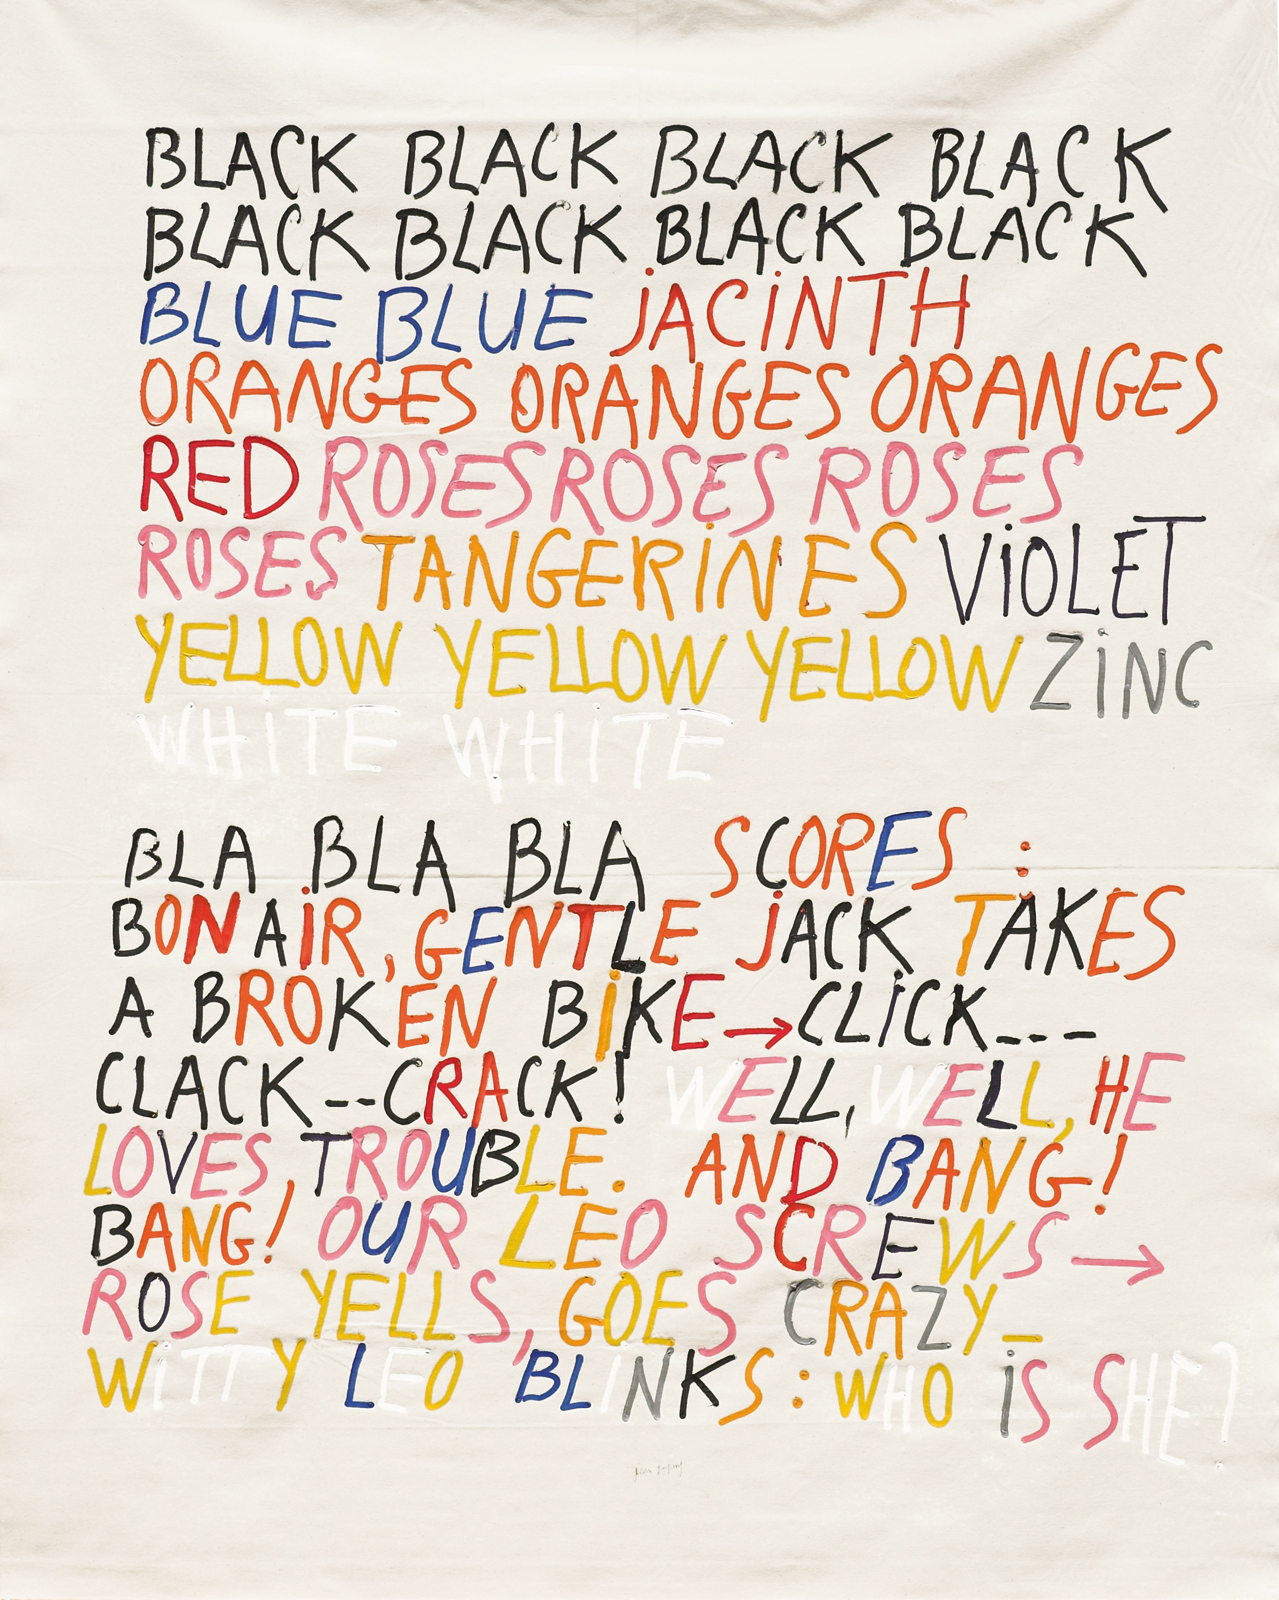 BLACK BLACK BLACK BLACK
BLACK BLACK BLACK BLACK
BLUE BLUE JACINTH
ORANGES ORANGES ORANGES
RED ROSES ROSES ROSES
ROSES TANGERINES VIOLET
YELLOW YELLOW YELLOW ZINC
WHITE WHITE
BLA BLA BLA SCORES :
BONAIR, GENTLE JACK TAKES
A BROKEN BIKE → CLICK---
CLACK--CRACK! WELL, WELL, HE
LOVES, TROUBLE. AND BANG!
BANG! OUR LEO SCREWS →
ROSE YELLS, GOES CRAZY_
WITTY LEO BLINKS : WHO IS SHE?